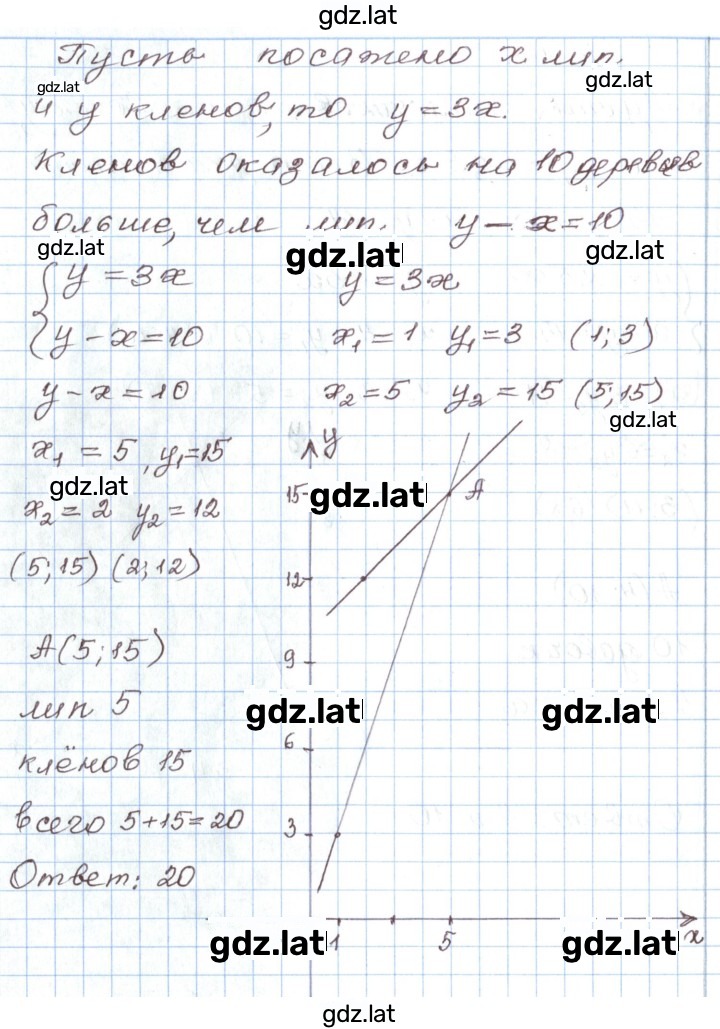 gdz.lat
Пусть посажено x лип.
gdz.lat
gdz.lat
и y кленов, то y = 3x.
Кленов оказалось на 10 деревьев
больше, чем лип. y - x = 10
gdz.lat
gdz.lat
gdz.lat
{ y = 3x y = 3x
y - x = 10 x₁ = 1 y₁ = 3 (1; 3)
y - x = 10 x₂ = 5 y₂ = 15 (5; 15)
gdz.lat
x₁ = 5, y₁ = 15 y
gdz.lat
15 gdz.lat A
x₂ = 2 y₂ = 12
(5; 15) (2; 12) 12
A(5; 15) 9
лип 5 gdz.lat gdz.lat
клёнов 15 6
всего 5 + 15 = 20 3
Ответ: 20
gdz.lat 1 5 gdz.lat x
gdz.lat